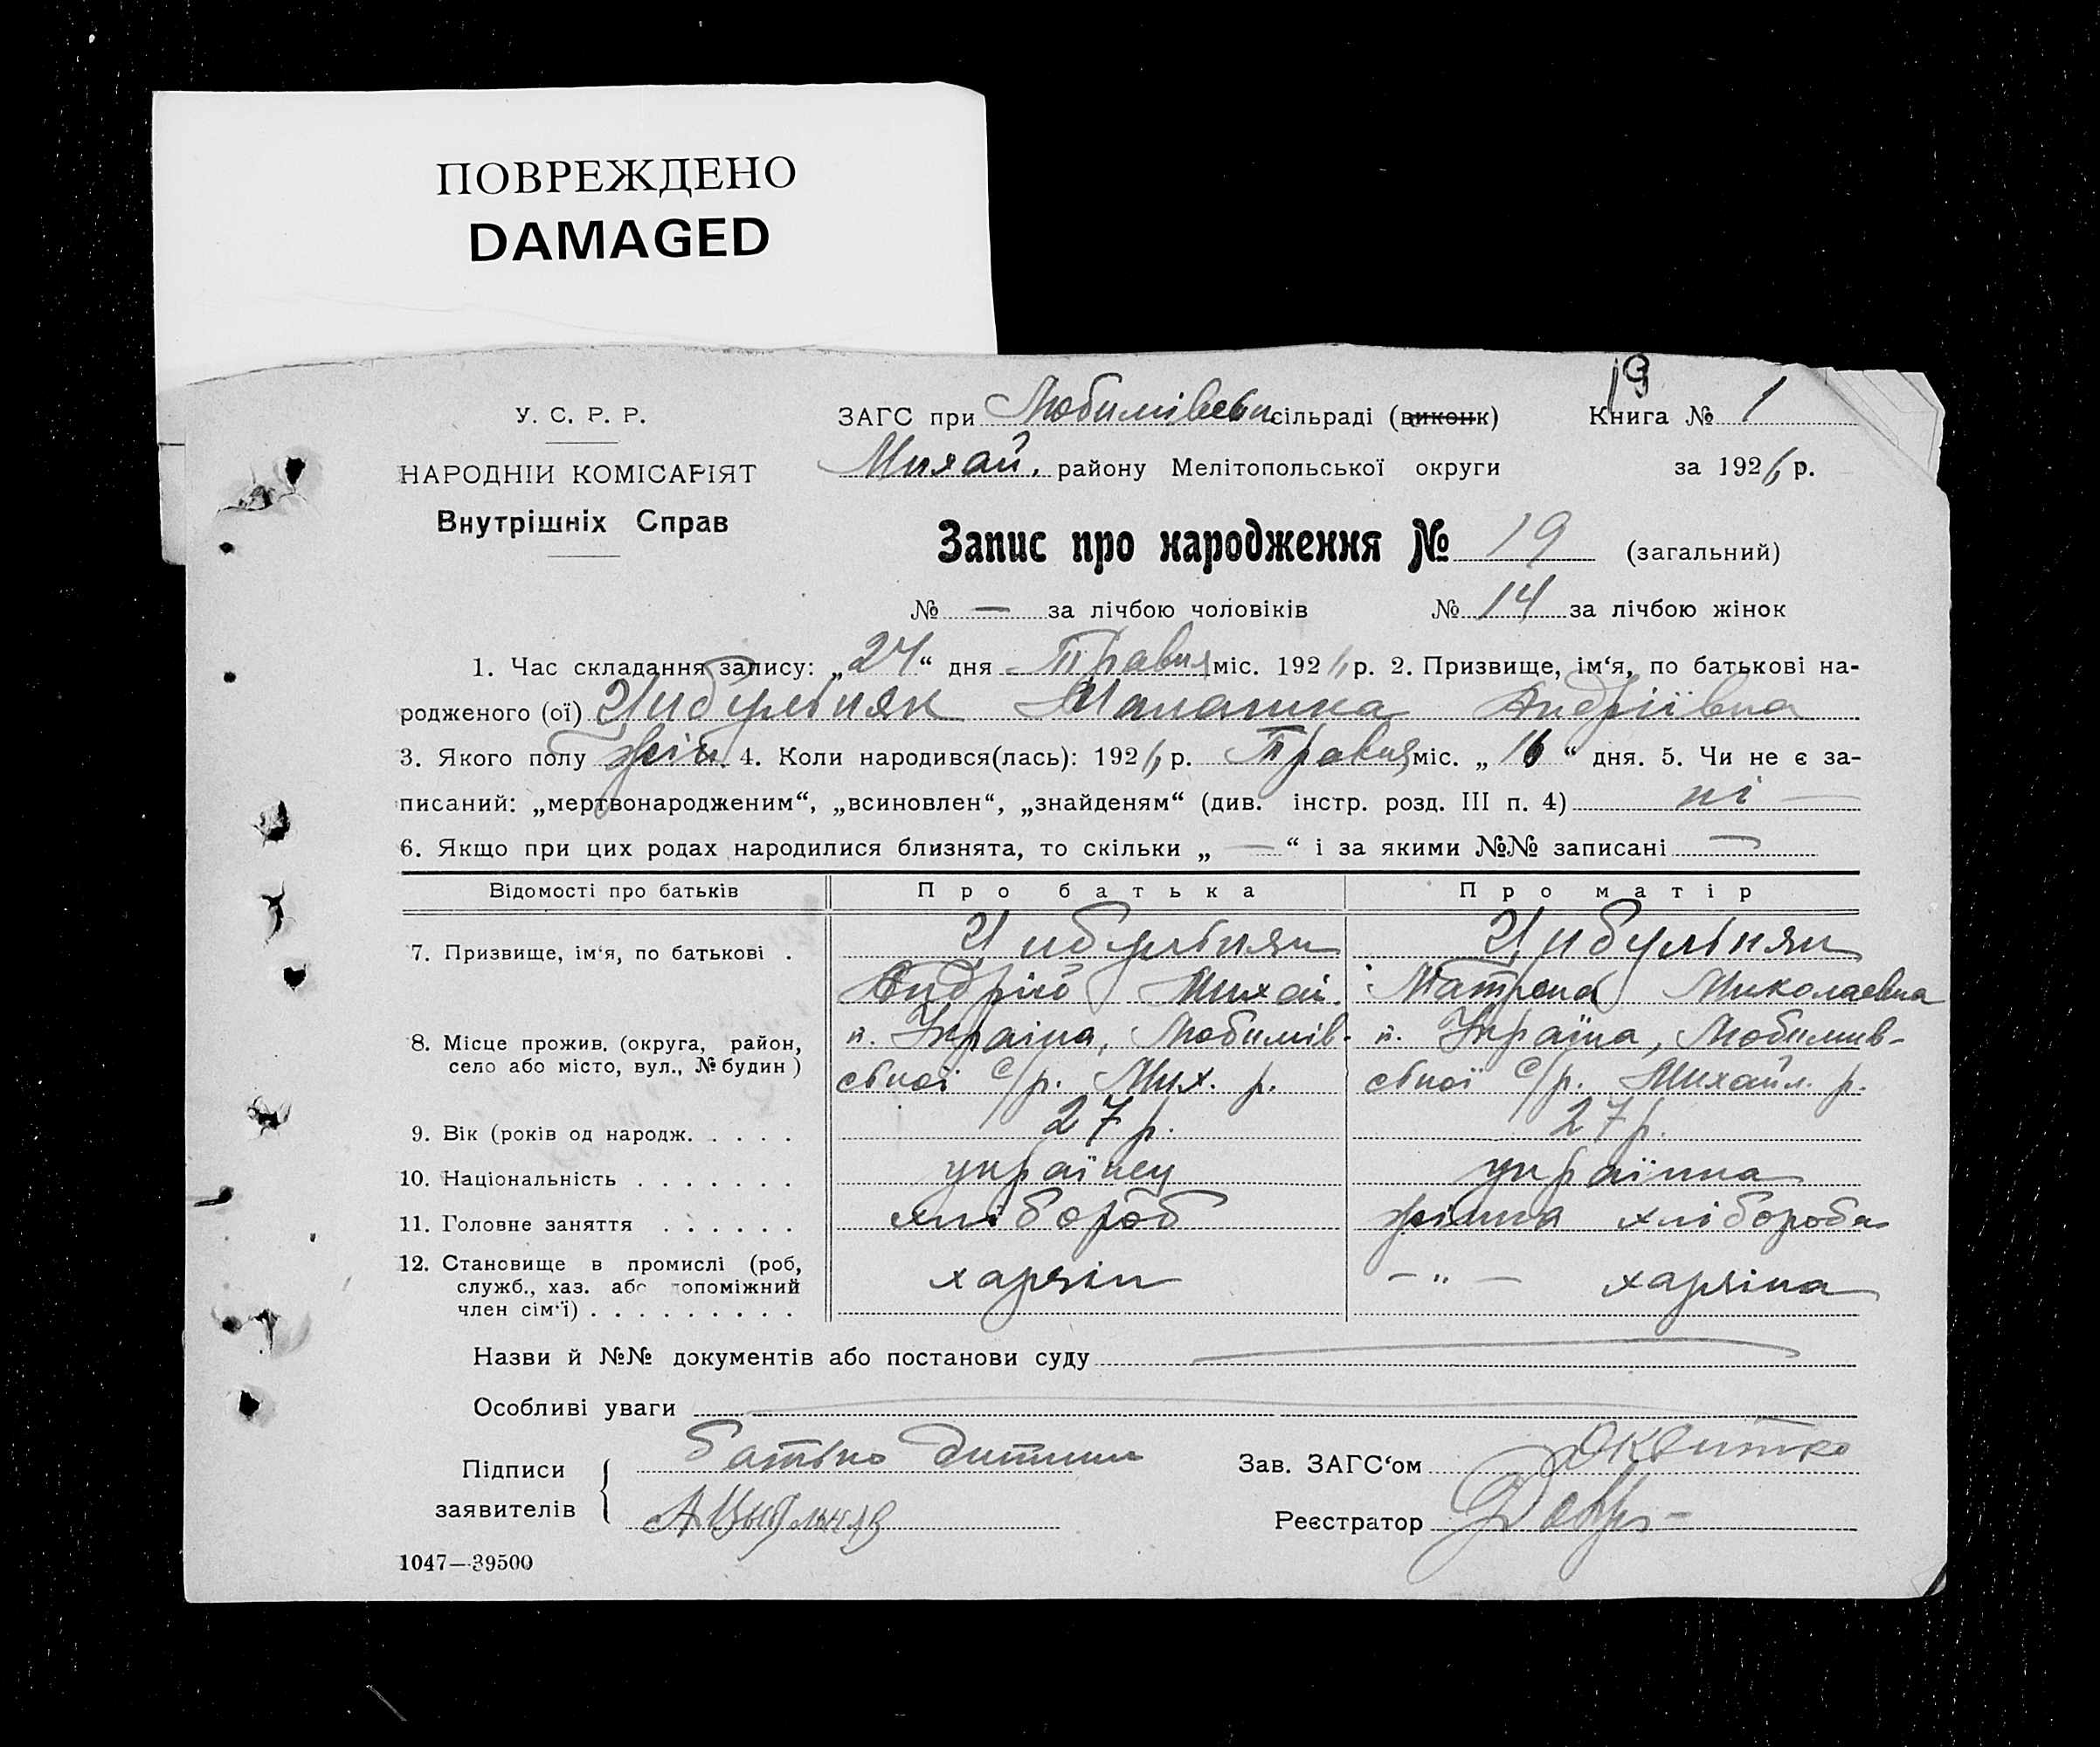 ПОВРЕЖДЕНО
DAMAGED
19
У. С. Р. Р.
ЗАГС при Любимівськ сільраді (виконк) Книга № 1
НАРОДНІЙ КОМІСАРІЯТ
Михай. району Мелітопольської округи за 1926 р.
Внутрішніх Справ
Запис про народження № 19 (загальний)
№ — за лічбою чоловіків № 14 за лічбою жінок
1. Час складання запису: „24“ дня Травня міс. 1926 р. 2. Призвище, ім‘я, по батькові на-
родженого (ої) Цибульняк Малашка Андріївна
3. Якого полу жін. 4. Коли народився(лась): 1926 р. Травня міс. „16“ дня. 5. Чи не є за-
писаний: „мертвонародженим“, „всиновлен“, „знайденям“ (див. інстр. розд. III п. 4) ні —
6. Якщо при цих родах народилися близнята, то скільки „—“ і за якими №№ записані —
Відомості про батьків Про батька Про матір
7. Призвище, ім‘я, по батькові . Цибульняк Цибульняк
Андрій Михай. Матрена Миколаевна
8. Місце прожив. (округа, район, п. Украіна, Любимів- п. Україна, Любимив-
село або місто, вул., № будин) ської с/р. Мих. р. ської с/р. Михайл. р.
9. Вік (років од народж. . . . . 27 р. 27 р.
10. Національність . . . . . . . українец українка
11. Головне заняття . . . . . . хлібороб жінка хлібороба
12. Становище в промислі (роб,
служб., хаз. або допоміжний хазяін — „ — хазяіка
член сім‘ї) . . . . . . . . .
Назви й №№ документів або постанови суду
Особливі уваги
Підписи батько дитини Зав. ЗАГС‘ом
заявителів Реєстратор
1047—39500